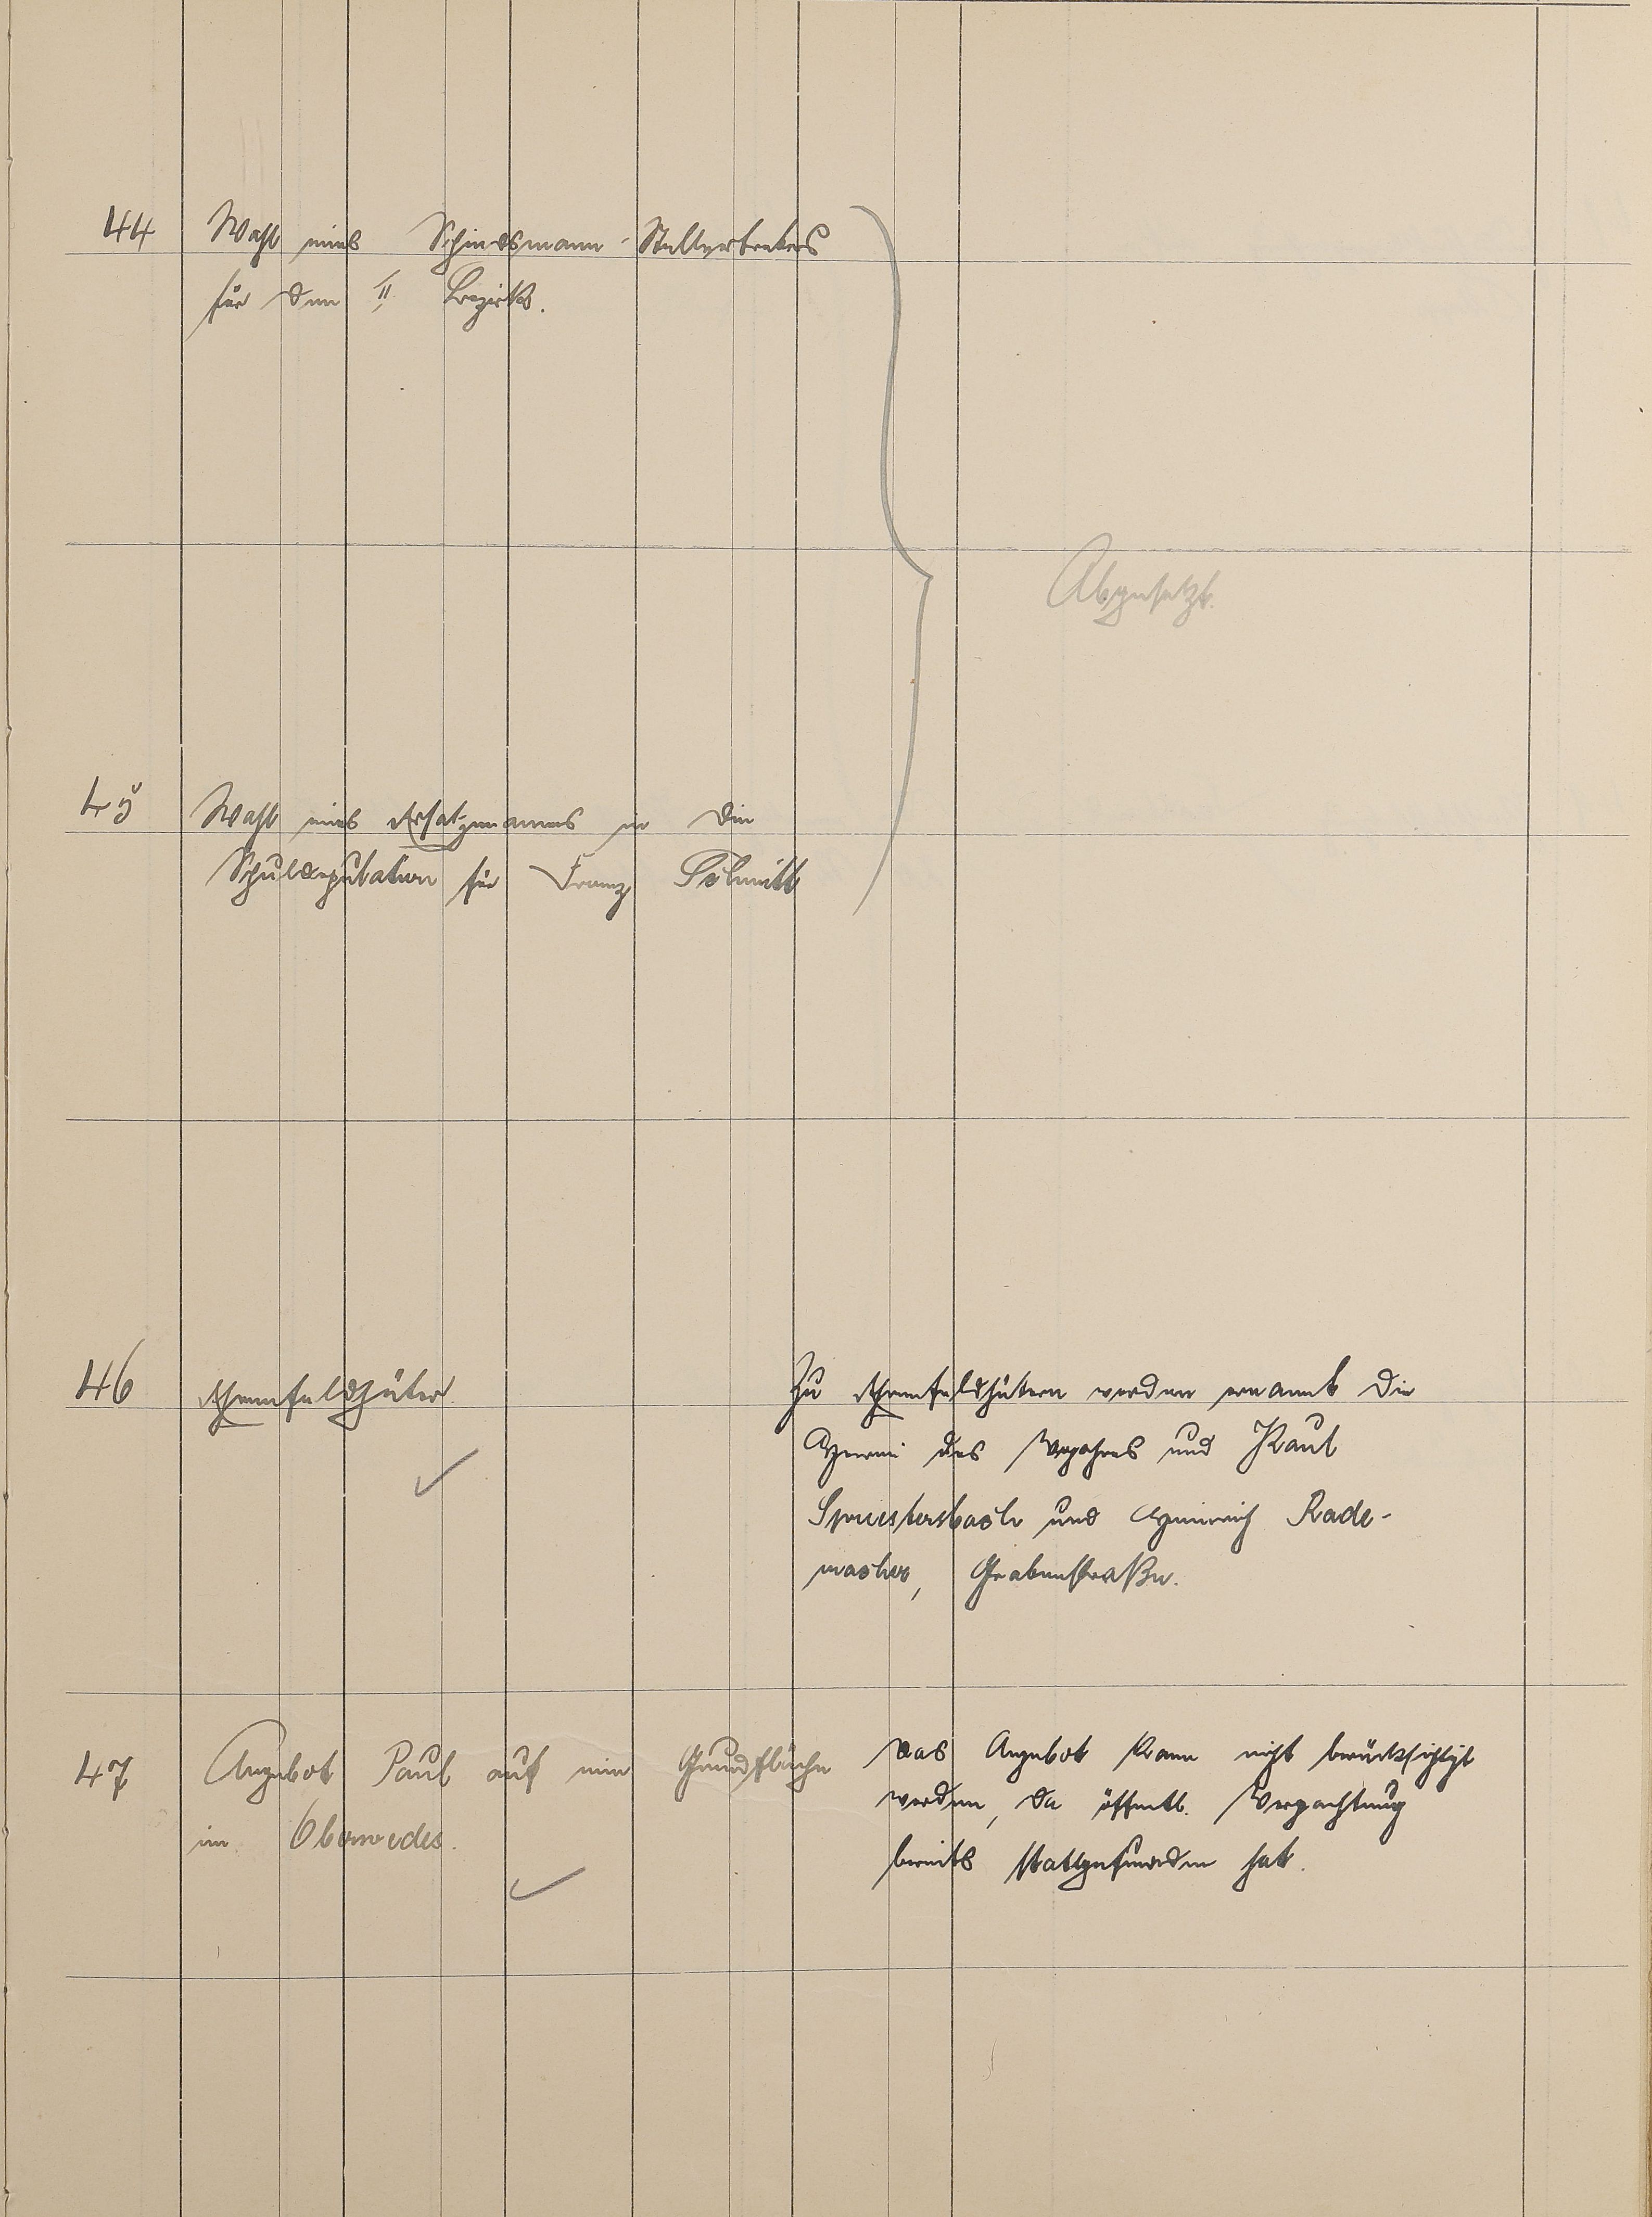 44 Wahl eines Schiedsmann-Stellvertreters
für den II. Bezirk.
Abgesetzt.
45 Wahl eines Ersatzmannes in die
Schuldeputation für Franz Schmitt
46 Ehrenfeldhüter.
Zu Ehrenfeldhütern werden ernannt die
des Vorjahres und Karl
und Heinrich Rade-
macher, Grabenstraße.
47 Angebot Paul auf eine Grundfläche
im
Das Angebot kann nicht berücksichtigt
werden, da öffentl. Verpachtung
bereits stattgefunden hat.